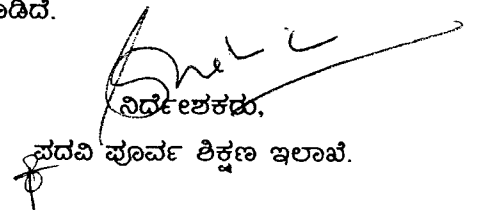 ಾಡಿದೆ.
ನಿರ್ದೇಶಕರು,
ಪದವಿ ಪೂರ್ವ ಶಿಕ್ಷಣ ಇಲಾಖೆ.